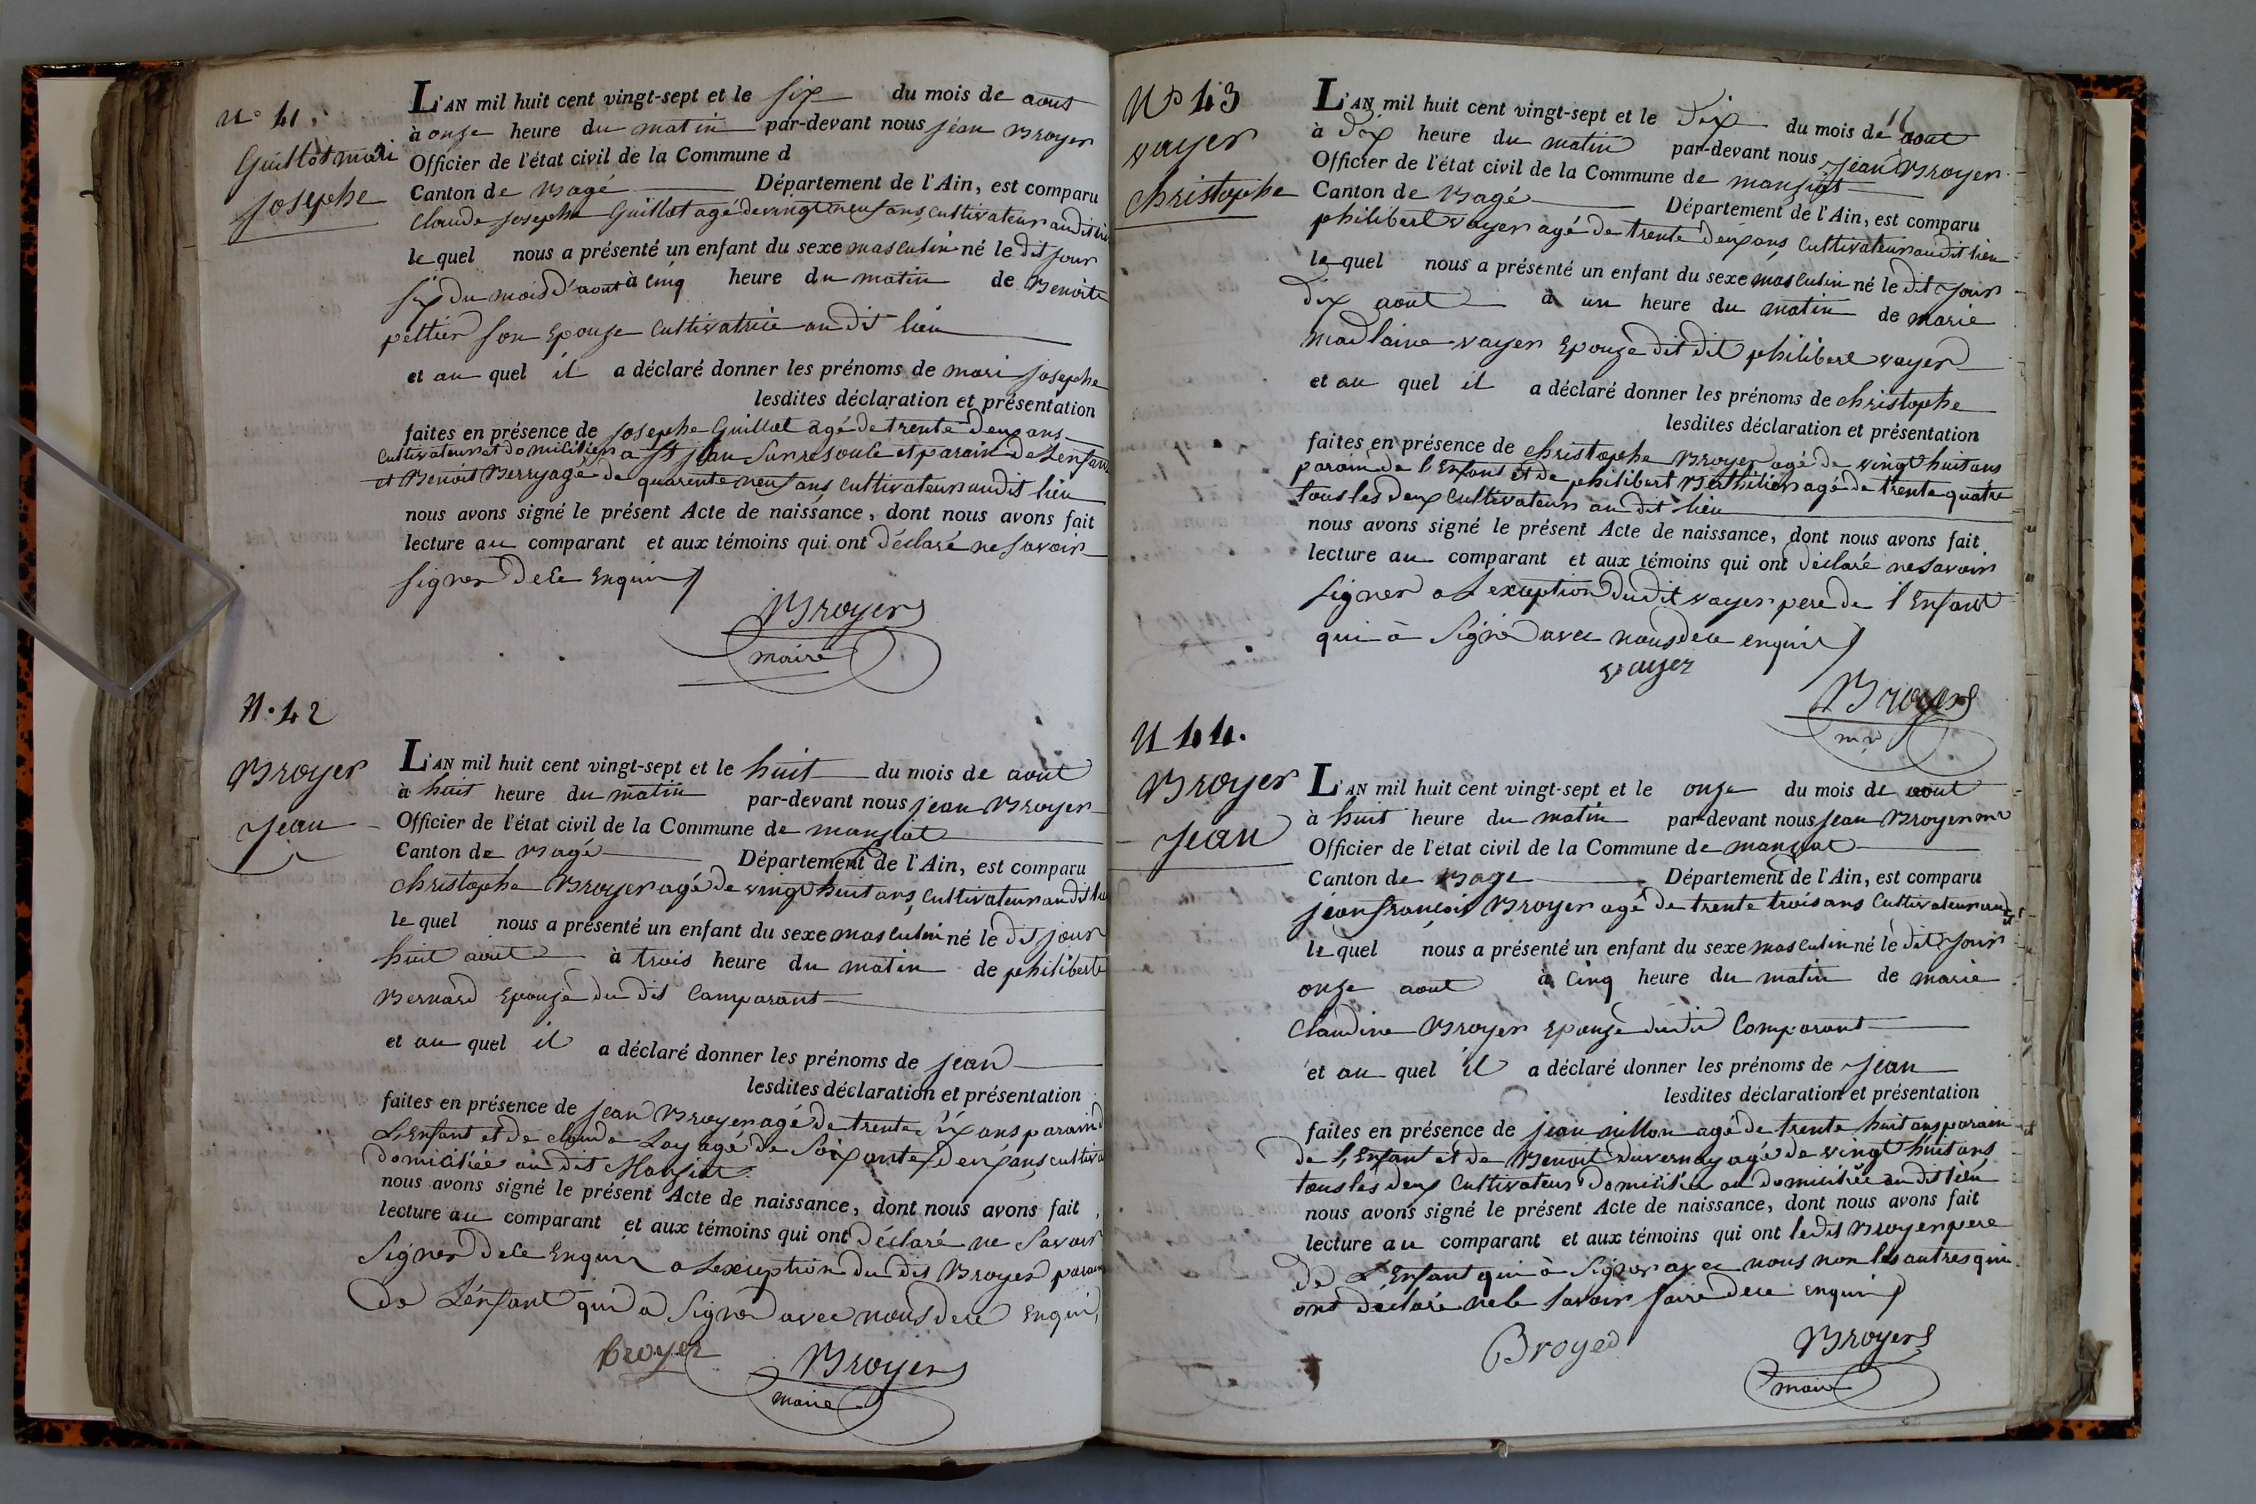 N° 41.
Guillot mari
Josephe
L'AN mil huit cent vingt-sept et le six du mois de aout
à onze heure du matin par-devant nous jean Broyer
Officier de l'état civil de la Commune d
Canton de Bagé Département de l'Ain, est comparu
Claude Josephe Guillot agé de vingt neuf ans, cultivateur audit lieu
le quel nous a présenté un enfant du sexe masculin né le dit jour
six du mois d'aout à cinq heure du matin de Benoite
pettier son Epouze cultivatrice au dit lieu
et au quel il a déclaré donner les prénoms de mari Josephe
lesdites déclaration et présentation
faites en présence de Josephe Guillot agé de trente deux ans
cultivateur et domicilier a St jean Surresoule et parain de L'enfant
et Benoit Berry agé de quarente neuf ans cultivateur audit lieu
nous avons signé le présent Acte de naissance, dont nous avons fait
lecture au comparant et aux témoins qui ont déclaré ne savoir
signer de ce Enquir
Broyer
maire
N. 42
Broyer
Jean
L'AN mil huit cent vingt-sept et le huit du mois de aout
à huit heure du matin par-devant nous jean Broyer
Officier de l'état civil de la Commune de mansiat
Canton de Bagé Département de l'Ain, est comparu
christophe Broyer agé de vingt huit ans, cultivateur au dit lieu
le quel nous a présenté un enfant du sexe masculin né le dit jour
huit aout à trois heure du matin de philiberte
Bernard Epouze du dit Comparant
et au quel il a déclaré donner les prénoms de jean
lesdites déclaration et présentation
faites en présence de jean Broyer agé de trente six ans parain d
L'Enfant et de claude Lay agé de soixante deux ans, cultiva
domiciliée au dit Mansiat
nous avons signé le présent Acte de naissance, dont nous avons fait
lecture au comparant et aux témoins qui ont déclaré ne savoir
Signer de ce Enquir a Lexception du dit Broyer parain
de L'énfant qui a Signer avec nous de ce Enquir
Broyer
Broyer
maire
N° 43
vayer
christophe
L'AN mil huit cent vingt-sept et le dix du mois de aout
à dix heure du matin par-devant nous Jean Broyer
Officier de l'état civil de la Commune de mansiat
Canton de Bagé Département de l'Ain, est comparu
philibert vayer agé de trente deux ans, cultivateur au dit lieu
le quel nous a présenté un enfant du sexe masculin né le dit jour
dix aout à un heure du matin de marie
madlaine vayer Epouze dit dit philibert vayer
et au quel il a déclaré donner les prénoms de christophe
lesdites déclaration et présentation
faites en présence de christophe Broyer agé de vingt huit ans
parain de l'Enfant et de philibert agé de trente quatre
tous les deux cultivateurs au dit lieu
nous avons signé le présent Acte de naissance, dont nous avons fait
lecture au comparant et aux témoins qui ont déclaré ne savoir
signer a L'exception du dit vayer pere de l'Enfant
qui à Signé avec nous de ce enquir
vayer
Broyer
mre
N 44.
Broyer
Jean
L'AN mil huit cent vingt-sept et le onze du mois de aout
à huit heure du matin par-devant nous Jean Broyer mre
Officier de l'état civil de la Commune de mansiat
Canton de Bage Département de l'Ain, est comparu
jean françois Broyer agé de trente trois ans cultivateur au dit
le quel nous a présenté un enfant du sexe masculin né le dit jour
onze aout à cinq heure du matin de marie
Claudine Broyer Epouze dudit Comparant
et au quel il a déclaré donner les prénoms de Jean
lesdites déclaration et présentation
faites en présence de jean millon agé de trente huit ans parain
de L'Enfant et de Benoit duvernay agé de vingt huit ans
tous les deux cultivateurs domicilier au domiciliée au dit lieu
nous avons signé le présent Acte de naissance, dont nous avons fait
lecture au comparant et aux témoins qui ont ledit Broyer pere
de L'Enfant qui à Signer avec nous non les autres qui
ont déclaré ne le savoir faire de ce enquir
Broyed
Broyer
maire